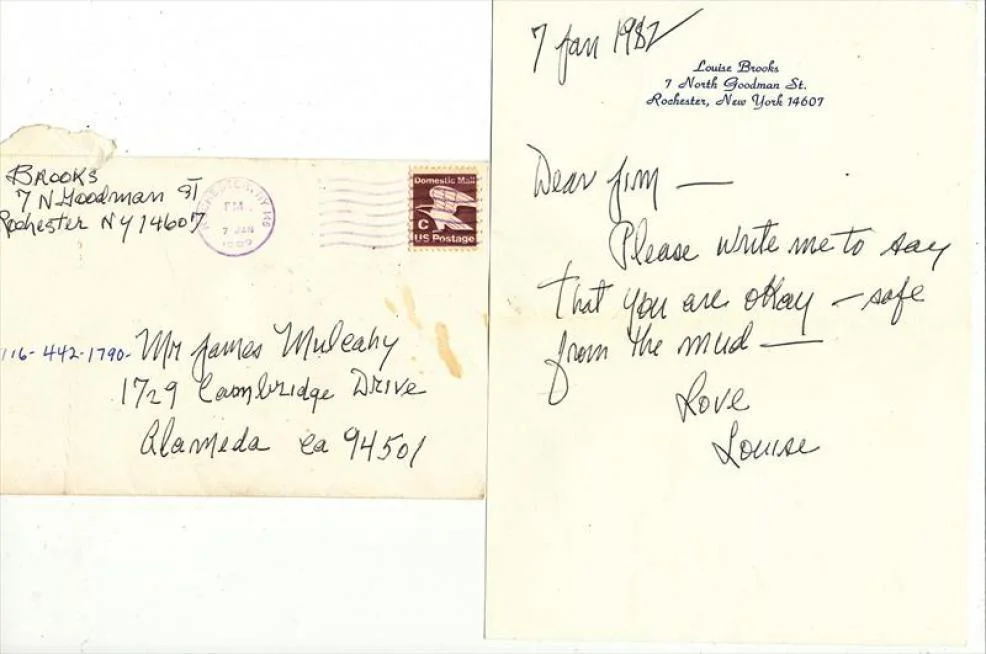 BROOKS
7 N Goodman ST
Rochester NY 14607
PM
7 JAN
Domestic Mail
C
US Postage
116-442-1790-
Mr James Mulcahy
1729 Cambridge Drive
Alameda Ca 94501
7 Jan 1982
Louise Brooks
7 North Goodman St.
Rochester, New York 14607
Dear Jim —
Please write me to say
that you are okay — safe
from the mud —
Love
Louise